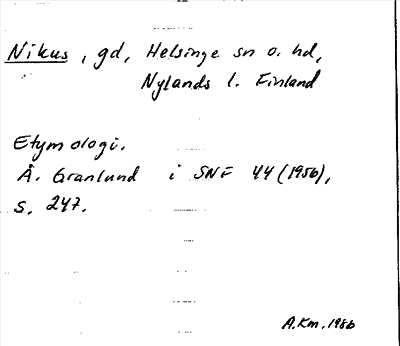 Nikus, gd, Helsinge sn o. hd,
Nylands l. Finland
Etymologi.
Å. Granlund i SNF 44 (1956),
s. 247.
A.Km. 1986